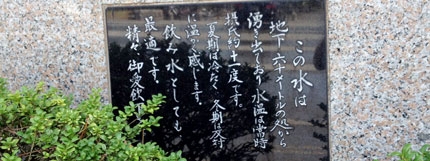 この水は
地下六十メートルの処から
湧き出ており水温は常時
摂氏約十一度です。
夏期は冷たく 冬期は
に温かく感じます。
飲み水としても
最適です。
精々 御愛飲